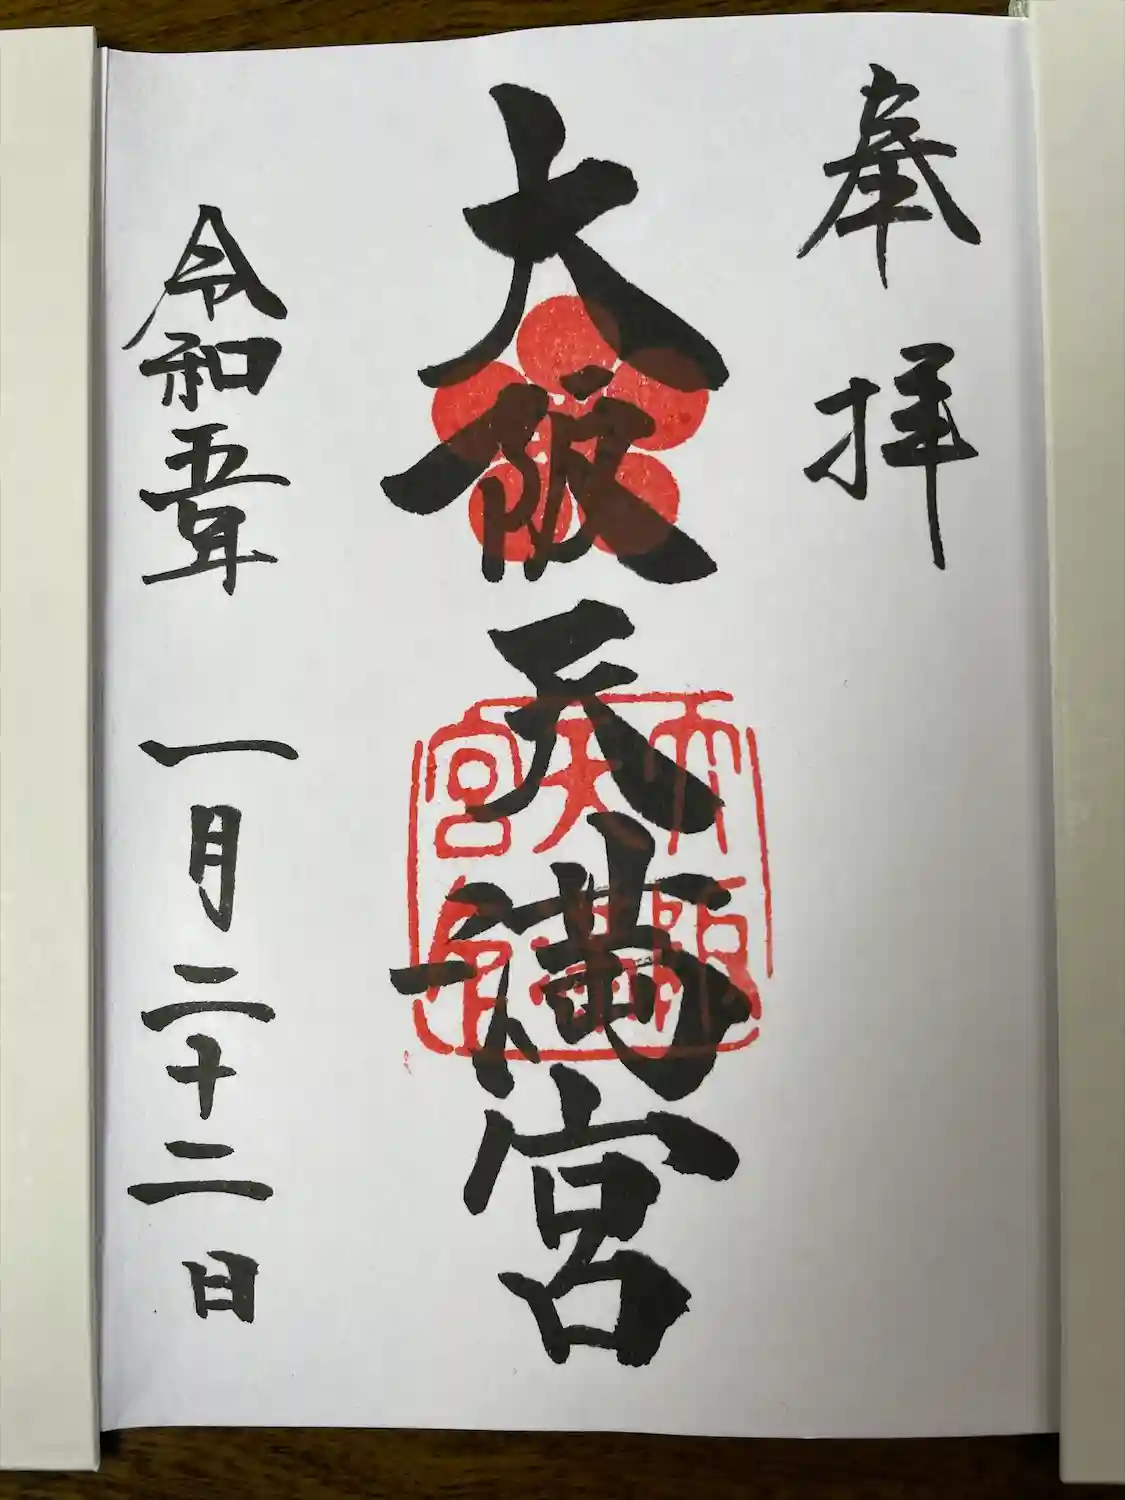 奉拝
大阪天満宮
大阪天満宮
令和五年 一月二十二日